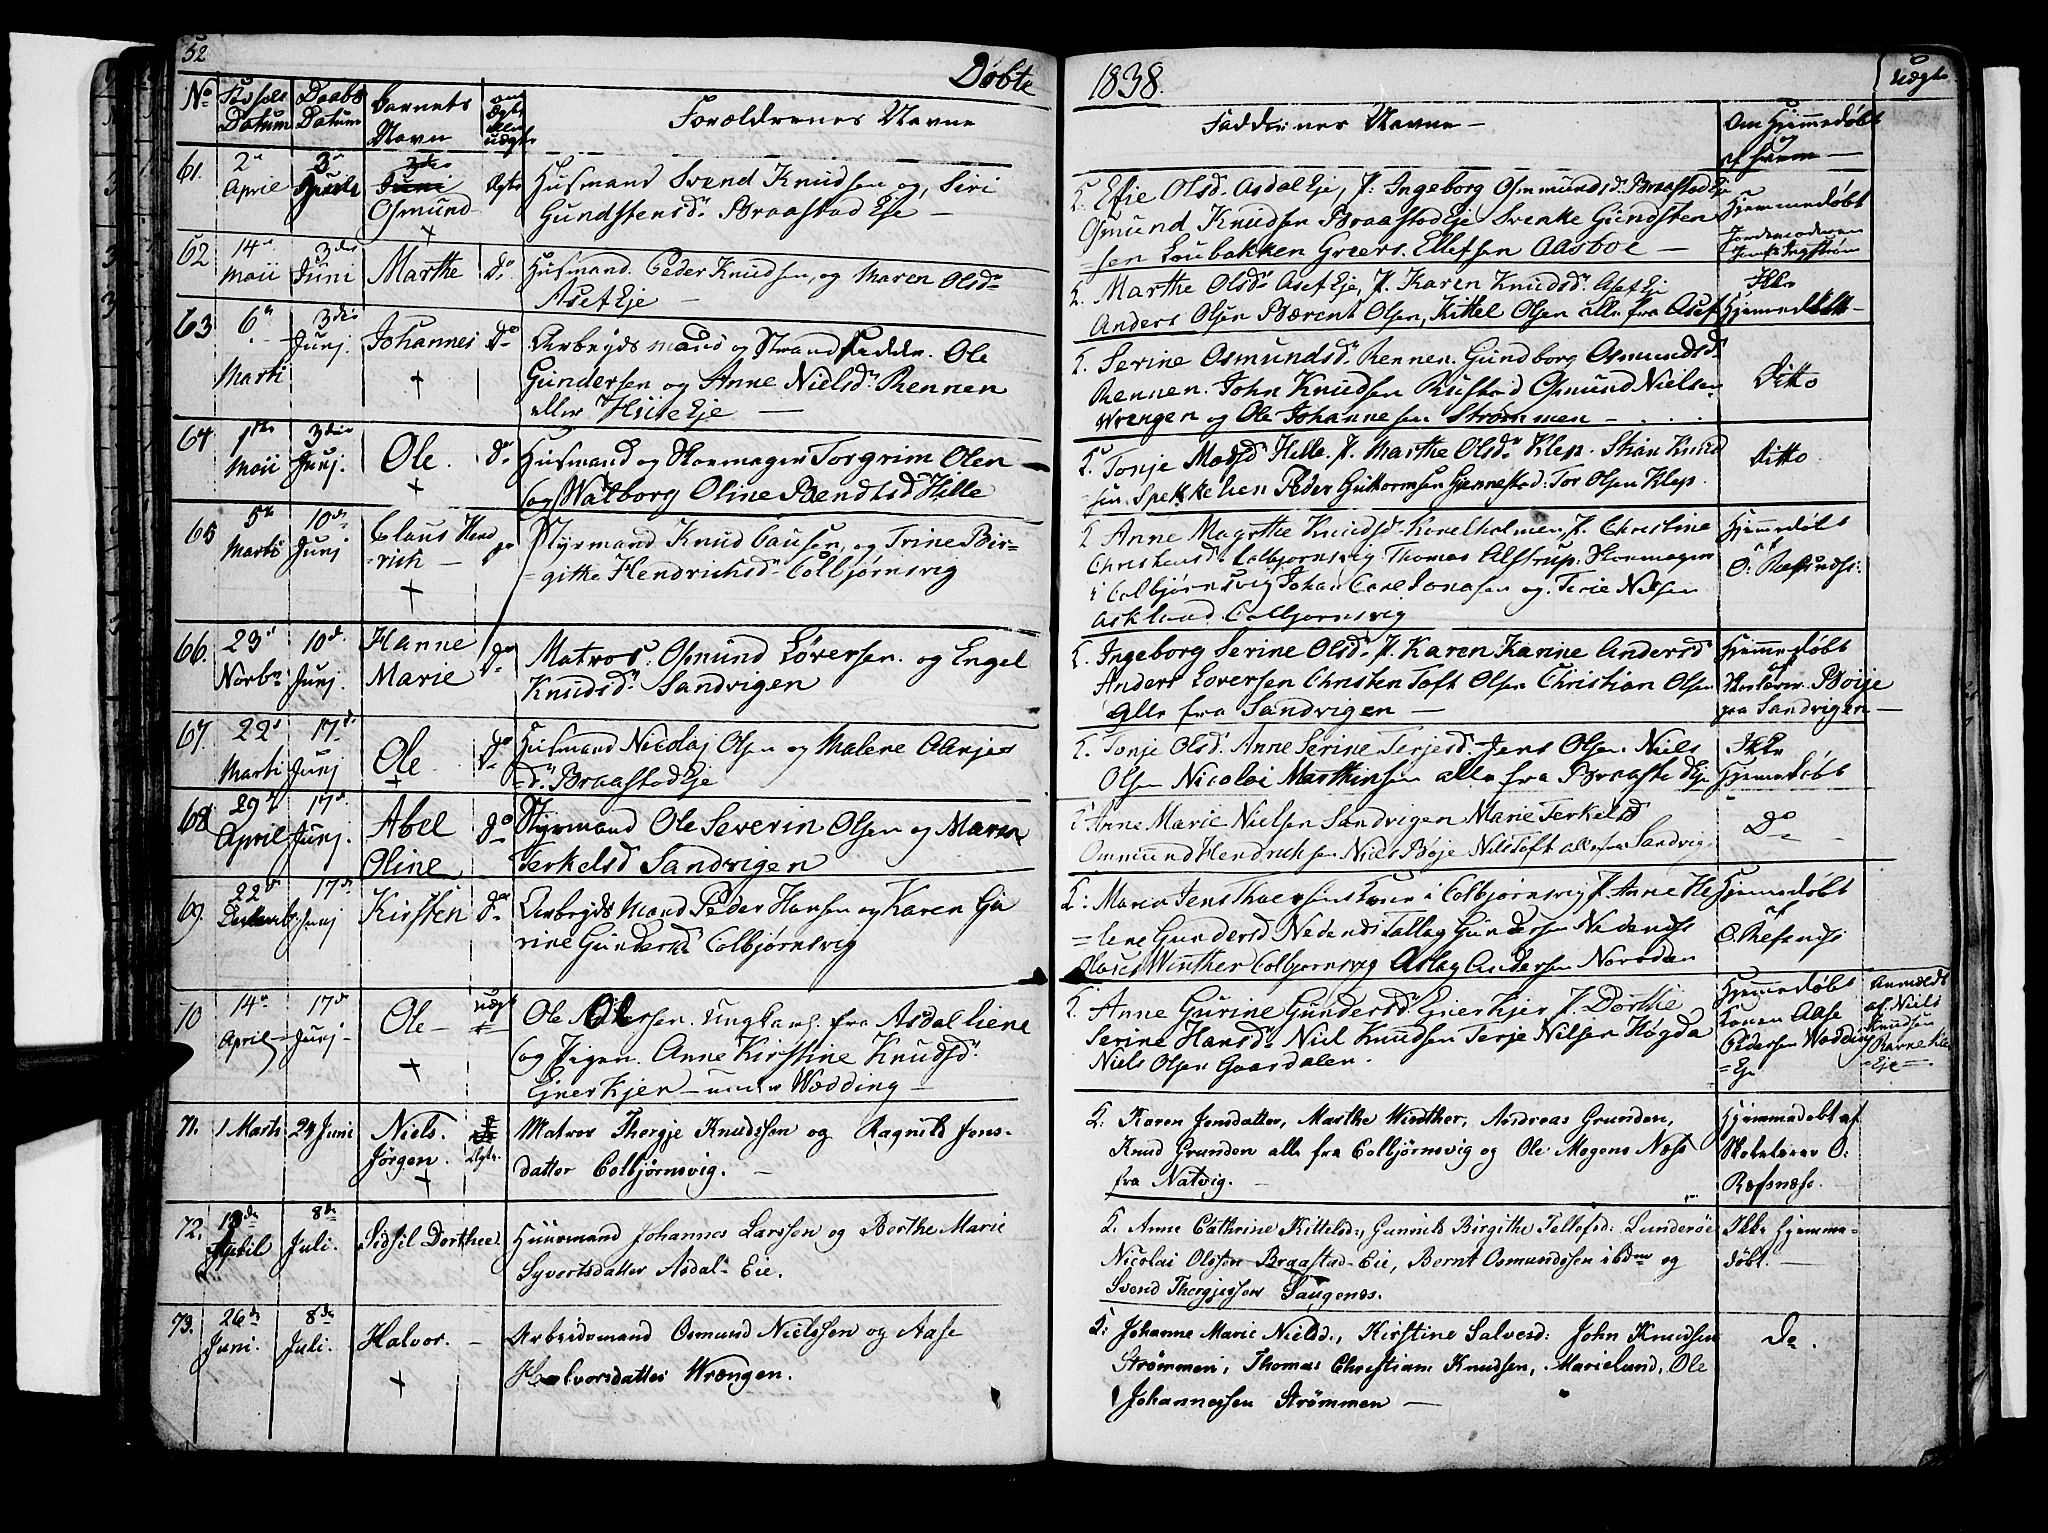 52
Døbte
1838.
Uægte
No Fødsels Datum Daabs Datum Barnets Navn om Ægte eller uægte Forældrenes Navne
Faddernes Navne — Om Hjemmedøbt af hvem —
61. 2den April 3die Osmund Ægte Husmand Svend Knudsen og Siri
Gundstensdr Braastad Eje —
F. Olsdr Asdal Eje, P. Ingeborg Osmundsdr Braastad Eje
Osmund Knudsen Braastad Eje Svenke Gundsten
sen Loubakken Greers Ellefsen Aasboe —
Hjemmedøbt
Jordemoderen
62 14de Maii 3die Juni Marthe Do Husmand Peder Knudsen, og Maren Olsdr
Aset Eje —
F. Marthe Olsdr Aset Eje, P. Karen Knudsdr Aset Eje
Anders Olsen Bærent Olsen, Kittel Olsen alle fra Aset
Ikke
Hjemmedøbt
63 6te Marti 3die Junj. Johannes Do Arbejdsmand og Strandsidder Ole
Gundersen og Anne Nielsdr Rennen
eller Hüde Eje —
F. Serine Osmundsdr Rennen. Gundborg Osmundsdr
Rennen. John Knudsen Osmund Nielsen
Wrengen og Ole Johannesen Strømmen —
Ditto
64 1ste Maii 3die Junj. Ole. Do Husmand og Skomager Torgrim Olen
og Walborg Oline Bendtsd Hille
F. Tonje Madsd Hille, P. Marthe Olsdr Klep. Stian Knud
sen Spekkelien Peder Guttormsen Gjennestad: Tor Olsen Klep.
Ditto
65 5te Marti 10de Junj Claus Hend
rich — Do Styrmand Knud Causen, og Trine Bir=
githe Hendrichsdr Colbjørnsvig
F. Anne Magrethe Knudsdr P. Christine
Christensdr Colbjørnsvig Thomas Elstrup. Skomager
i Colbjørnsvig Johan Carl Jonasen og Terie Nielsen
Askland Colbjørnsvig
Hjemmedøbt
66. 23de Novbr 10de Junj. Hanne
Marie Do Matros. Osmund Løversen. og Engel
Knudsdr Sandvigen
F. Ingeborg Serine Olsdr P. Karen Karine Andersd
Anders Loversen Christen Toft Olsen Christian Olsen
alle fra Sandvigen —
Hjemmedøbt
af
Skolærer Boije
paa Sandvigen —
67. 22de Marti 17de Junj Ole Do Husmand Nicolaj Olsen og Malene
dr Braastad Eje
F. Tonje Olsd. Anne Serine Terjesd. Jens Olsen. Niels
Olsen Nicolai Marthinsen alle fra Braasted Eje
Ikke
Hjemmedøbt
68 29de April 17de Junj. Abel
Oline Do Styrmand Ole Severin Olsen og Maren
Terkelsd Sandvigen
F. Anne Marie Nielsen Sandvigen Marie Terkelsd
Ommund Hendriksen Niels Boje Nils Toft alle fra Sandvig.
Do
69. 22de Decemb. 17de Junj Kirsten Do Arbejds Mand Peder Hansen og Karen Gu
rine Gundersd Colbjørnsvig
F: Maren Jens Thorsens Kone i Colbjørnsvig P. Anne He
lene Gundersd Nedenæs Tallag Gundersen Nedenæs
Winther Colbjørnsvig Aslag Andersen Norodan
Hjemmedøbt
af
70 14de April 17de Junj Ole — uægte Ole Olsen. Ungkarl. fra Asdal liene
og Pigen. Anne Kirstine Knudsdr
Ejnerkjer — under Wedding —
F. Anne Gurine Gundersdr Ejnerkjer P. Dorthe
Serine Hansdr Niel Knudsen Terje Nilsen Høgda
Niels Olsen Gaardalen.
Hjemmedøbt
Konen Aase
Pedersen Wedding
Eje
Anmeldt
af Niels
Knudsen
Eje —
71. 1 Marts 24 Juni Niels
Jørgen. Ægte. Matros Thergje Knudssen og Ragnild Jens-
datter Colbjørnsvig. —
F: Karen Jensdatter, Marthe Winther, Andreas Grunden,
Knud Grunden alle fra Colbjørnsvig og Ole Mogens Næse
fra Natvig.
Hjemmedøbt af
Skolelærer O:
Ræfsnæse.
72. April 8de Juli. Sidsil Dorthea Huusmand Johannes Larssen og Berthe Marie
Syvertsdatter Asdal-Eie.
F. Anne Cathrine Kittelsd., Gunnild Birgithe Tellefsd: Lunderöe
Nicolai Olssen Braastad-Eie, Bernt Osmundssen ibdm og
Svend Thergjessen Saugenes.
Ikke Hjemme-
døbt. —
73. 26de Juni. 8de Juli. Halvor. — Arbeidsmand Osmund Nielssen og Aase
Halvorsdatter Wrængen.
F: Johanne Marie Nielsd., Kirstine Salvesd: John Knudsen
Strømmen, Thomas Christian Knudsen, Marielund, Ole
Johannessen Strømmen —
Do.